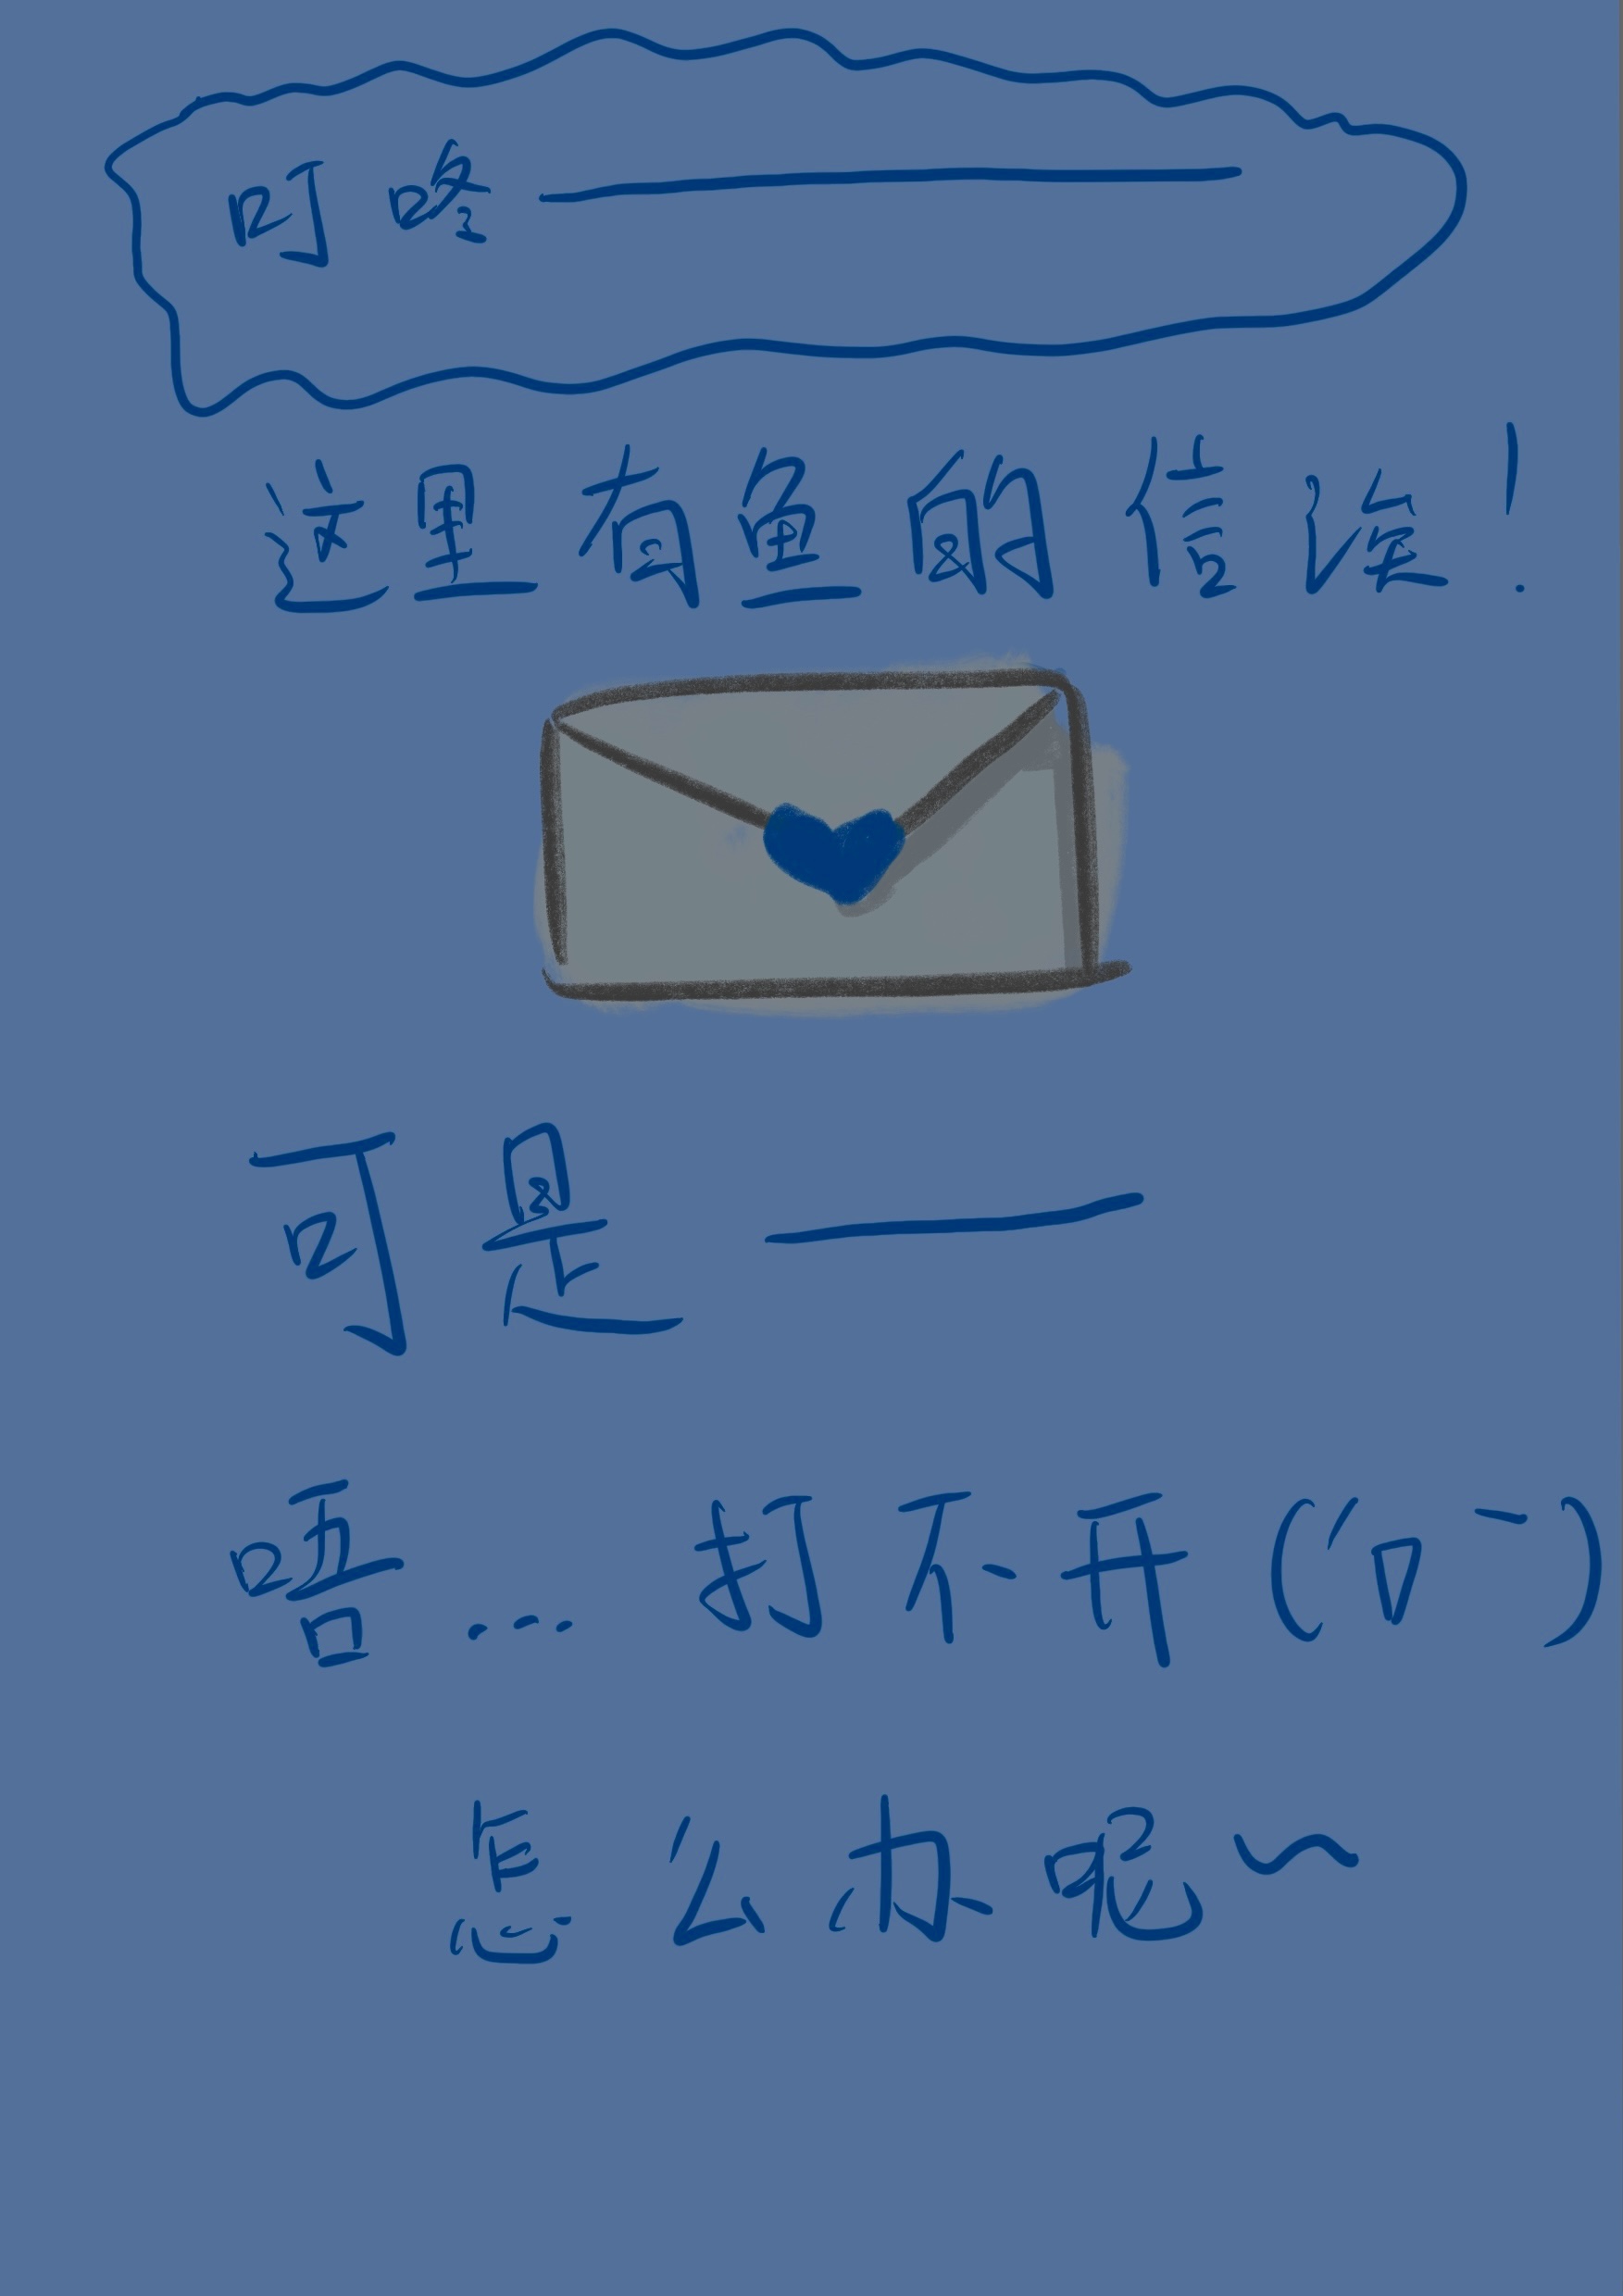 叮咚——
这里有鱼的信诶！
可是——
唔...打不开(´ロ`)
怎么办呢～